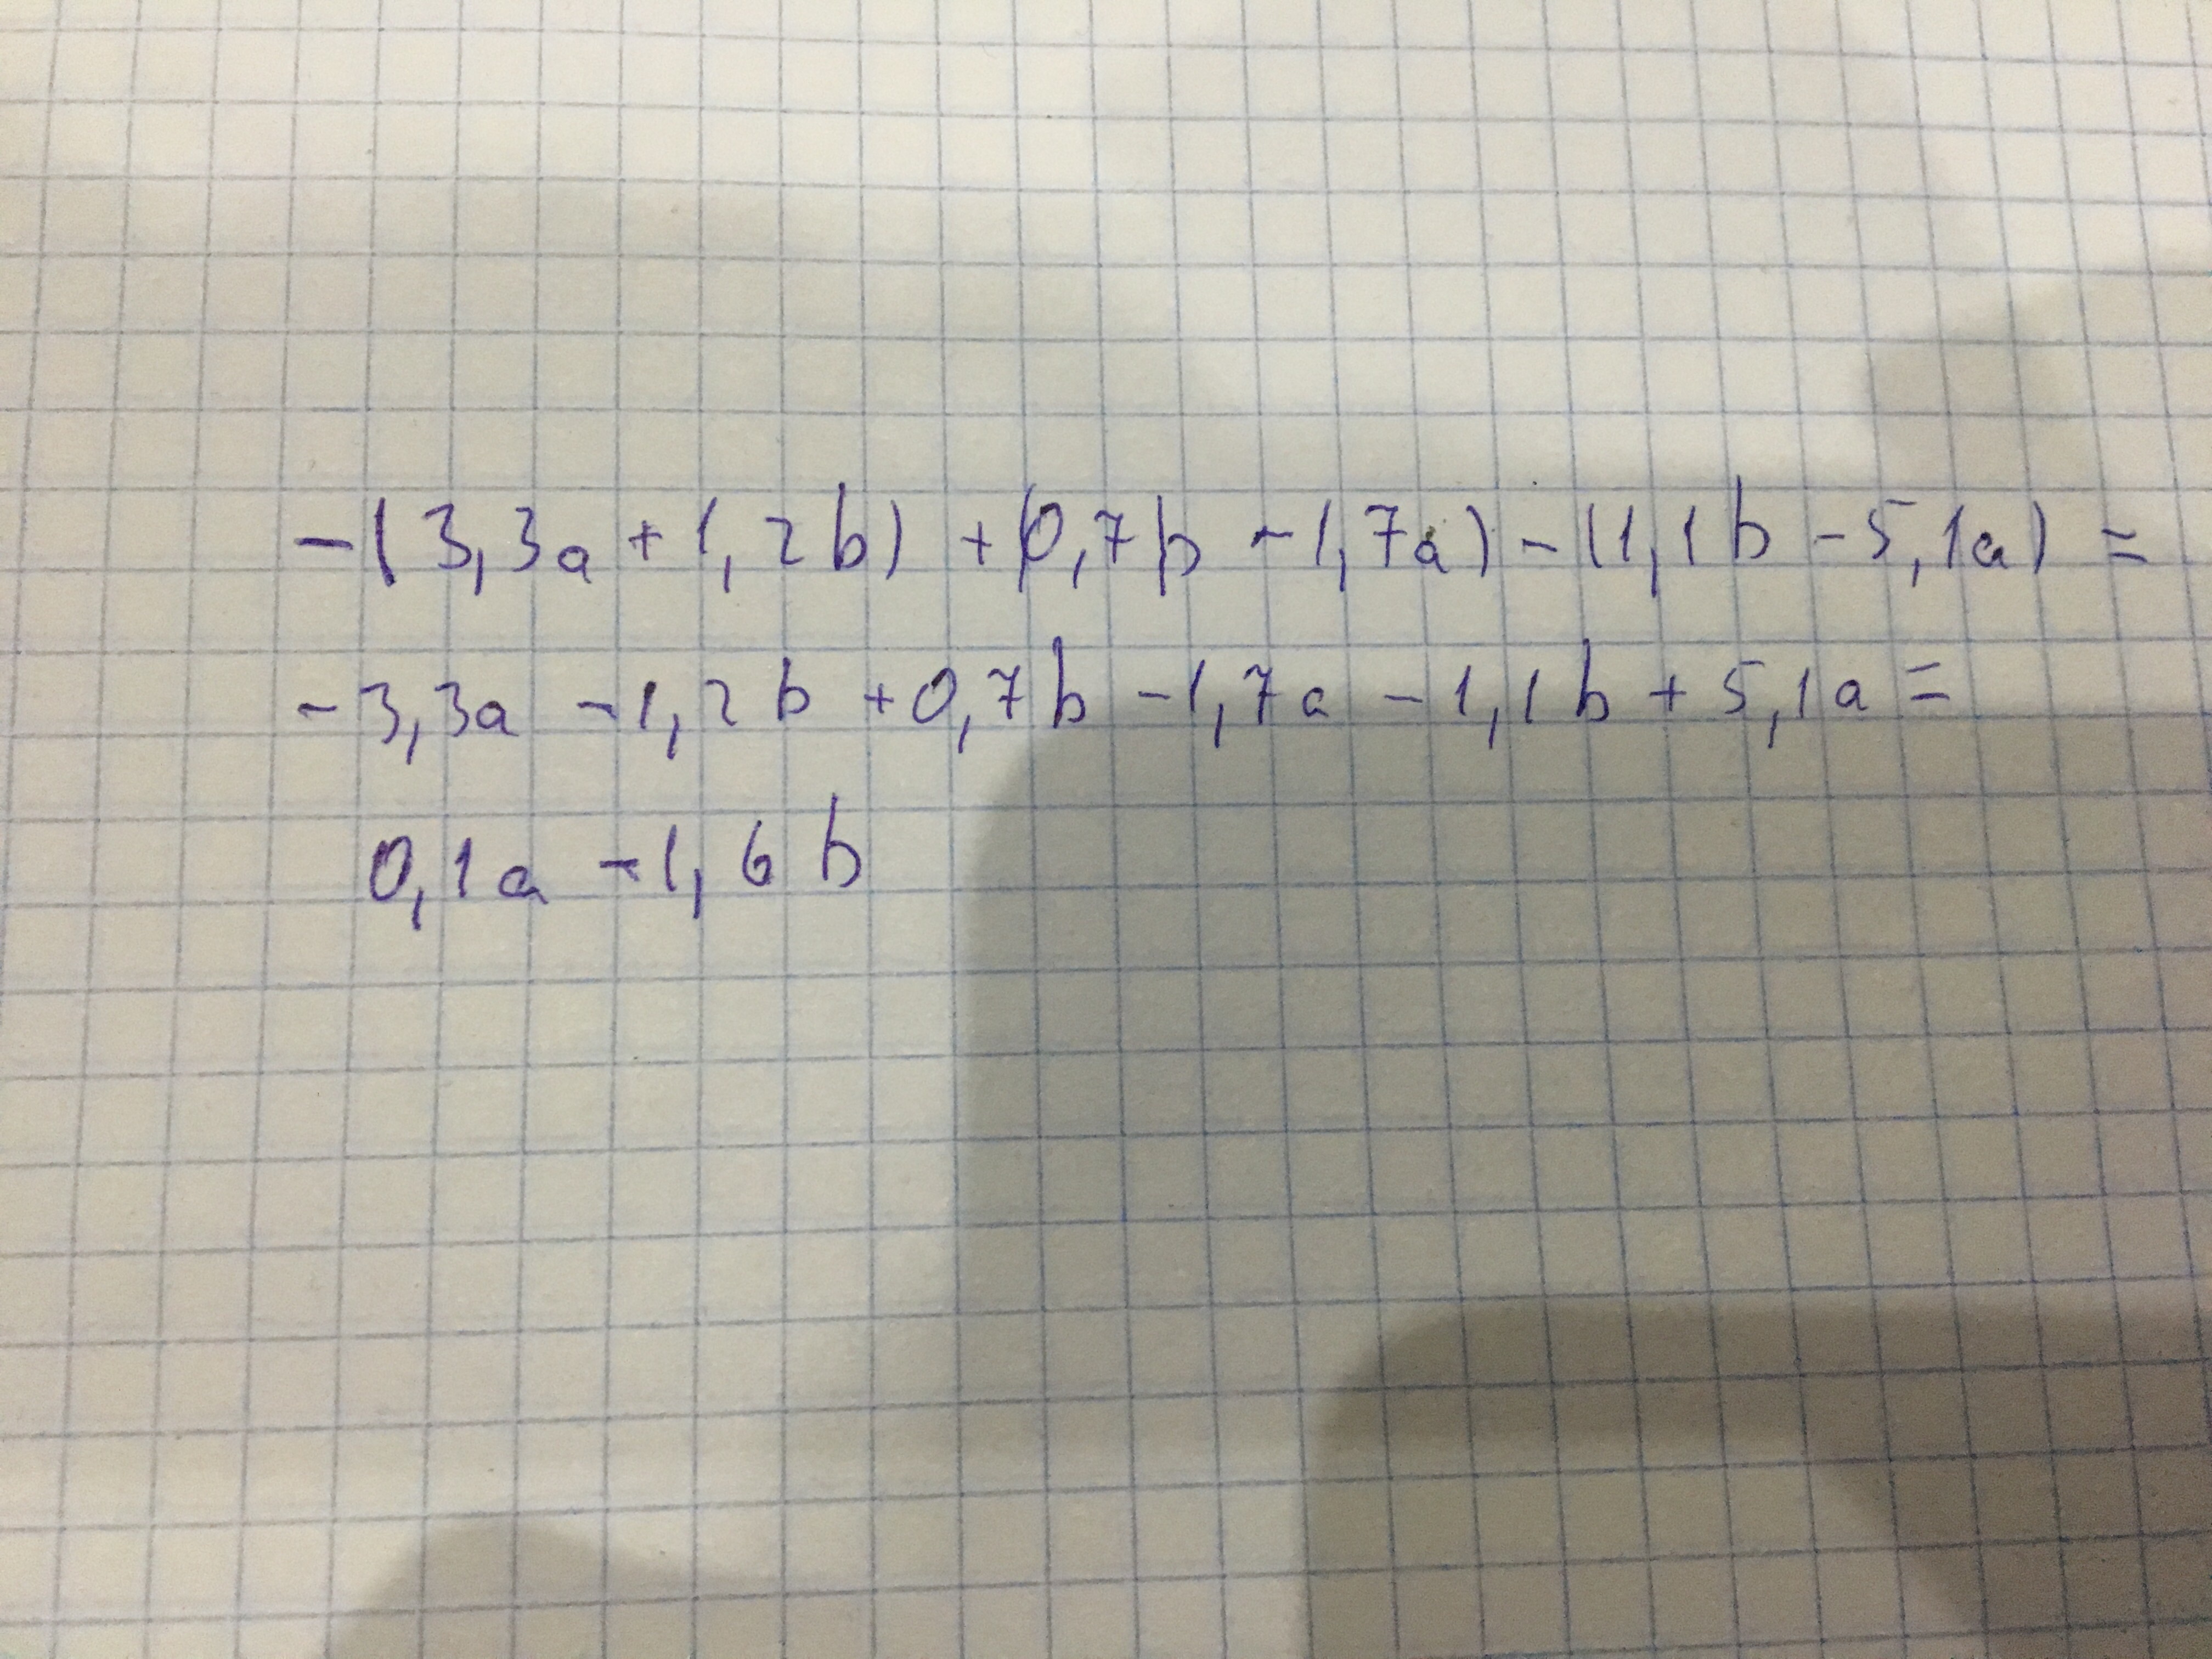 -(3,3a + 1,2b) + (0,7b - 1,7a) - (1,1b - 5,1a) =
-3,3a - 1,2b + 0,7b - 1,7a - 1,1b + 5,1a =
0,1a - 1,6b